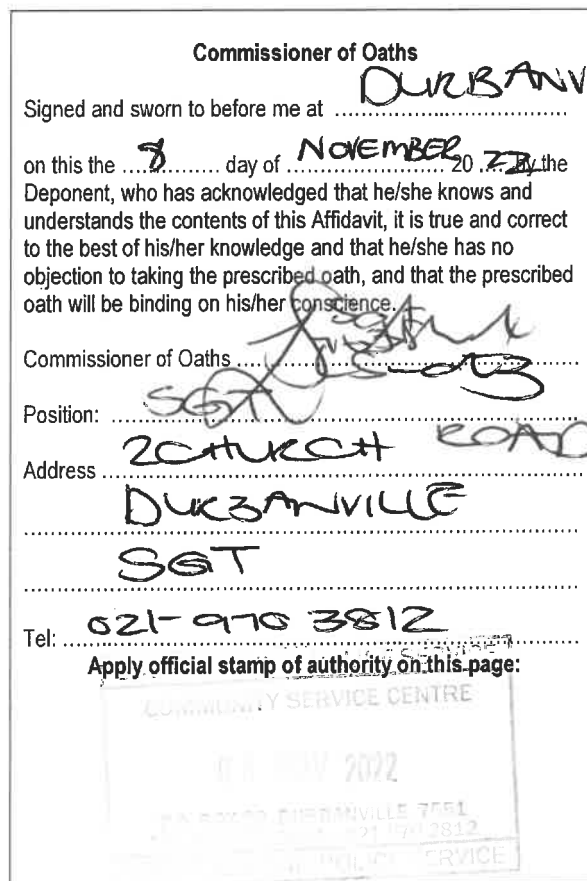 Commissioner of Oaths
Signed and sworn to before me at DURBANV
on this the 8 day of NOVEMBER 20 22 by the
Deponent, who has acknowledged that he/she knows and
understands the contents of this Affidavit, it is true and correct
to the best of his/her knowledge and that he/she has no
objection to taking the prescribed oath, and that the prescribed
oath will be binding on his/her conscience.
Commissioner of Oaths
Position: SGT
Address 2 CHURCH ROAD
DURBANVILLE
SGT
Tel: 021-970 3812
Apply official stamp of authority on this page:
COMMUNITY SERVICE CENTRE
NOV 2022
DURBANVILLE 7551
SERVICE